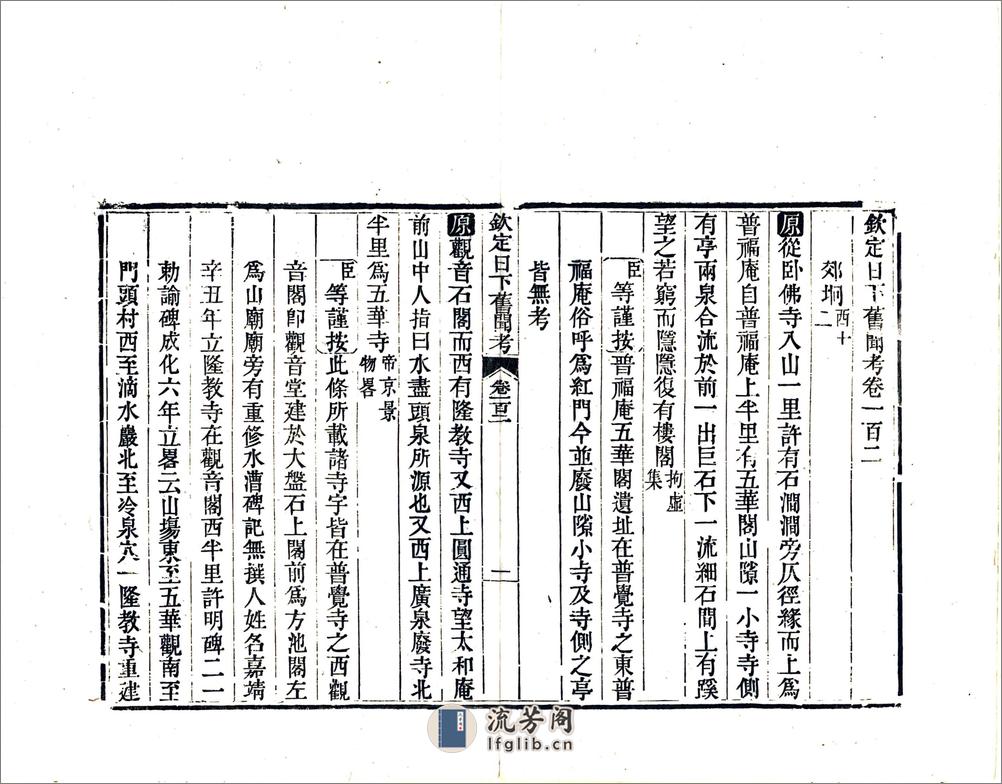 欽定日下舊聞考卷一百二
郊坰西十二
原從卧佛寺入山一里許有石澗澗旁仄徑緣而上爲
普福庵自普福庵上半里有五華閣山隙一小寺寺側
有亭兩泉合流於前一出巨石下一流細石間上有蹊
望之若窮而隱隱復有樓閣拘虛集
臣等謹按普福庵五華閣遺址在普覺寺之東普
福庵俗呼爲紅門今並廢山隙小寺及寺側之亭
皆無考
欽定日下舊聞考 卷一百二 一
原觀音石閣而西有隆教寺又西上圓通寺望太和庵
前山中人指曰水盡頭泉所源也又西上廣泉廢寺北
半里爲五華寺帝京景物畧
臣等謹按此條所載諸寺字皆在普覺寺之西觀
音閣卽觀音堂建於大盤石上閣前爲方池閣左
爲山廟廟旁有重修水漕碑記無撰人姓名嘉靖
辛丑年立隆教寺在觀音閣西半里許明碑二一
勅諭碑成化六年立畧云山塲東至五華觀南至
門頭村西至滴水巖北至冷泉穴一隆教寺重建
流芳阁
lfglib.cn